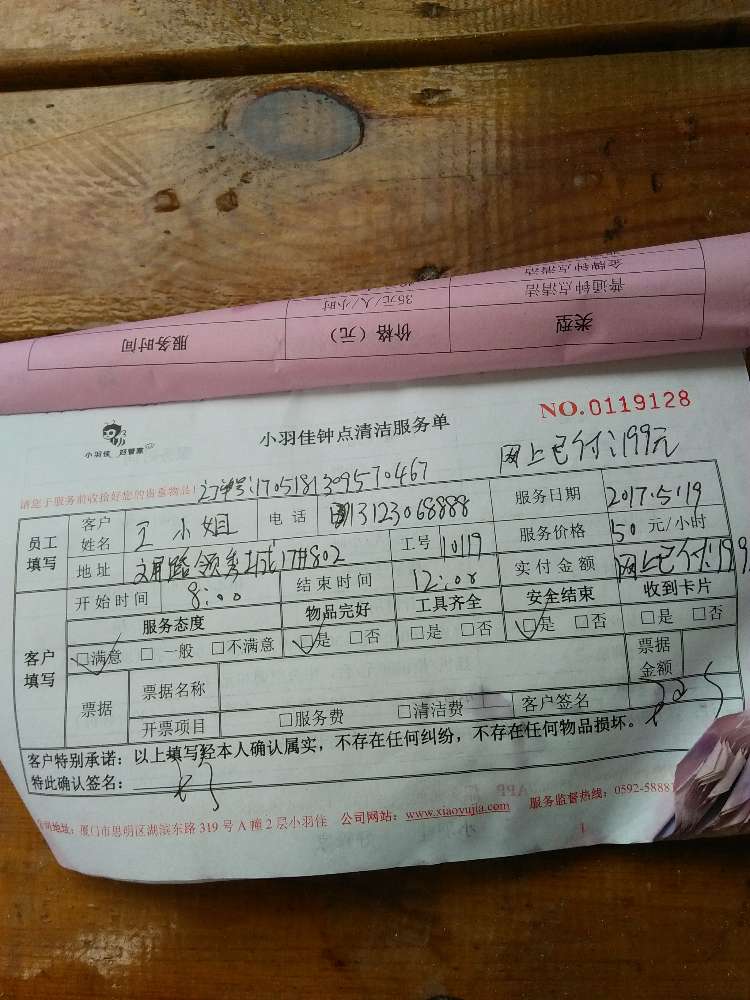 金牌钟点清洁
普通钟点清洁 35元/人/小时
类型 价格（元） 服务时间
小羽佳 好管家
小羽佳钟点清洁服务单
NO.0119128
网上已付:199元
请您于服务前收拾好您的贵重物品!
订单号:1705181309570467
员工填写 客户姓名 王小姐 电话 13123068888 服务日期 2017.5.19
地址 领秀城17#802 工号 10119 服务价格 50 元/小时
开始时间 8:00 结束时间 12:00 实付金额 网上已付:199
客户填写 服务态度 物品完好 工具齐全 安全结束 收到卡片
□满意 □一般 □不满意 □是 □否 □是 □否 □是 □否 □是 □否
票据 票据名称 票据金额
开票项目 □服务费 □清洁费 客户签名
客户特别承诺：以上填写经本人确认属实，不存在任何纠纷，不存在任何物品损坏。
特此确认签名：
地址：厦门市思明区湖滨东路 319 号 A 幢 2 层小羽佳 公司网站：www.xiaoyujia.com 服务监督热线：0592-58881